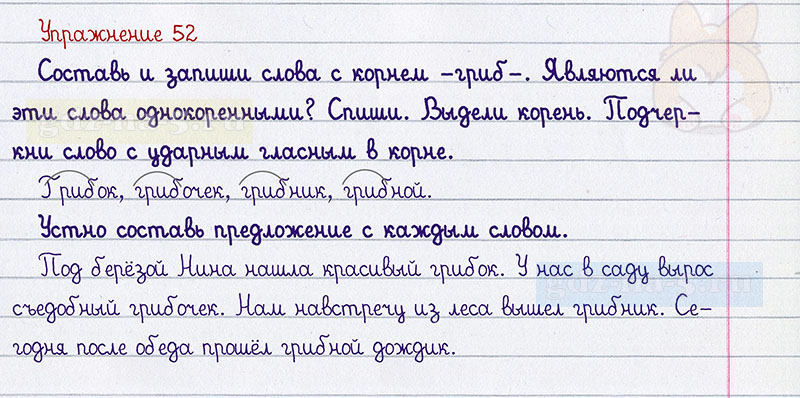 Упражнение 52
Составь и запиши слова с корнем -гриб-. Являются ли
эти слова однокоренными? Спиши. Выдели корень. Подчер-
кни слово с ударным гласным в корне.
Грибок, грибочек, грибник, грибной.
Устно составь предложение с каждым словом.
Под берёзой Нина нашла красивый грибок. У нас в саду вырос
съедобный грибочек. Нам навстречу из леса вышел грибник. Се-
годня после обеда прошёл грибной дождик.